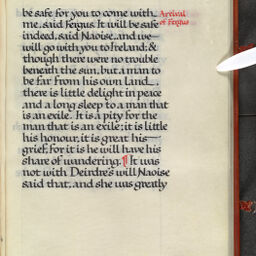 be safe for you to come with
me, said Fergus. It will be safe
indeed, said Naoise, and we
will go with you to Ireland; &
though there were no trouble
beneath the sun, but a man to
be far from his own land,
there is little delight in peace
and a long sleep to a man that
is an exile. It is a pity for the
man that is an exile; it is little
his honour, it is great his
grief, for it is he will have his
share of wandering. ¶ It was
not with Deirdre's will Naoise
said that, and she was greatly
Arrival
of Fergus